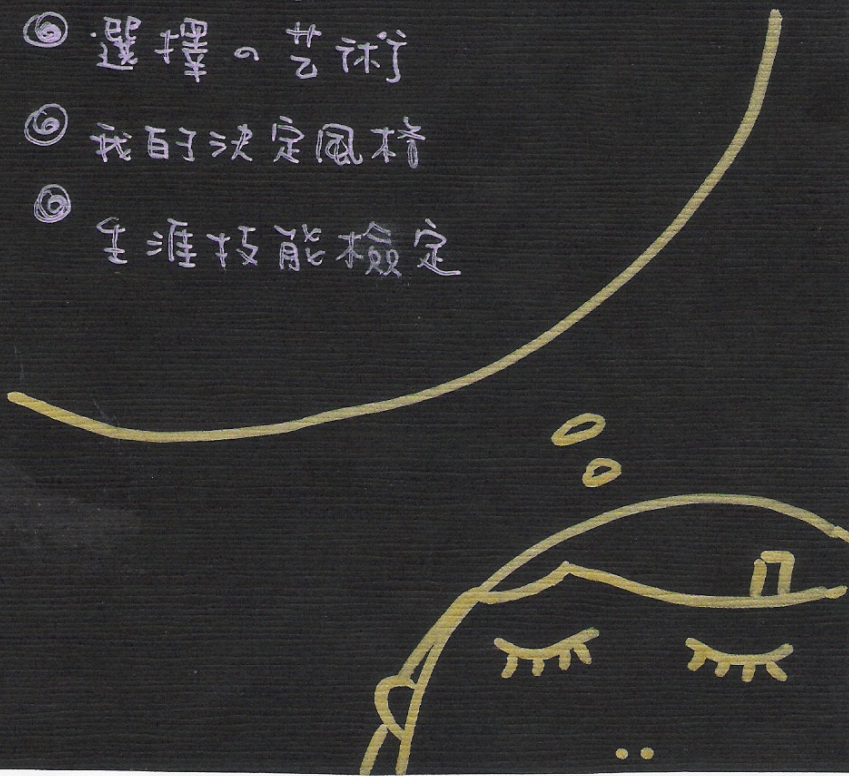 選擇の芸術
我的決定風格
生涯技能檢定